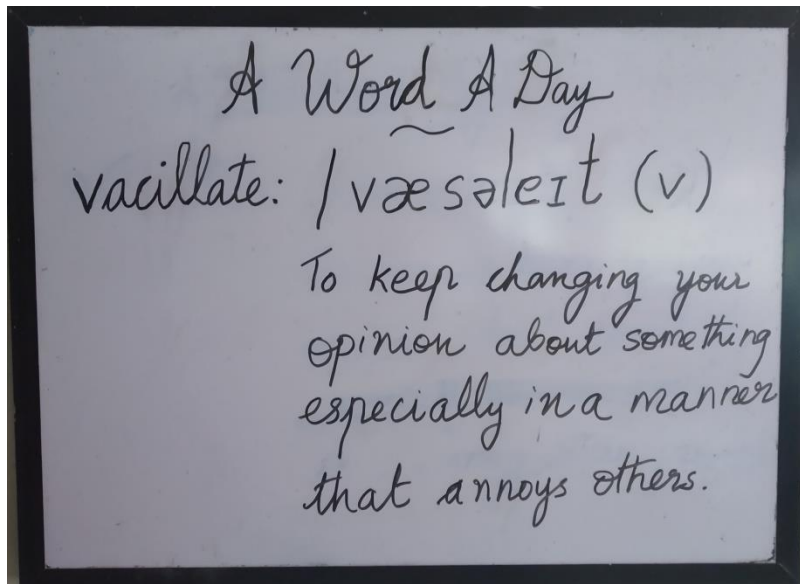 A Word A Day
vacillate: /væsəleɪt (v)
To keep changing your
opinion about something
especially in a manner
that annoys others.